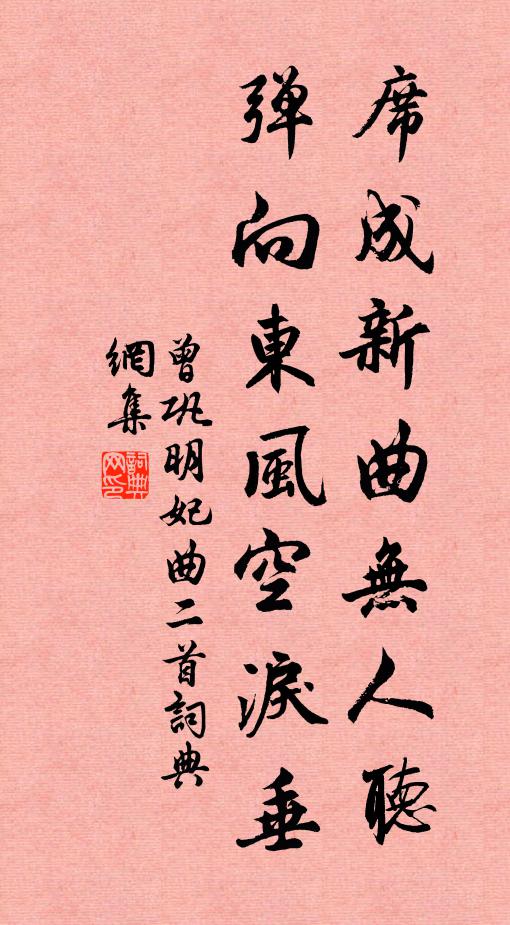 席成新曲無人聽
彈向東風空淚垂
曾巩明妃曲二首詞典
網集
詞典网印